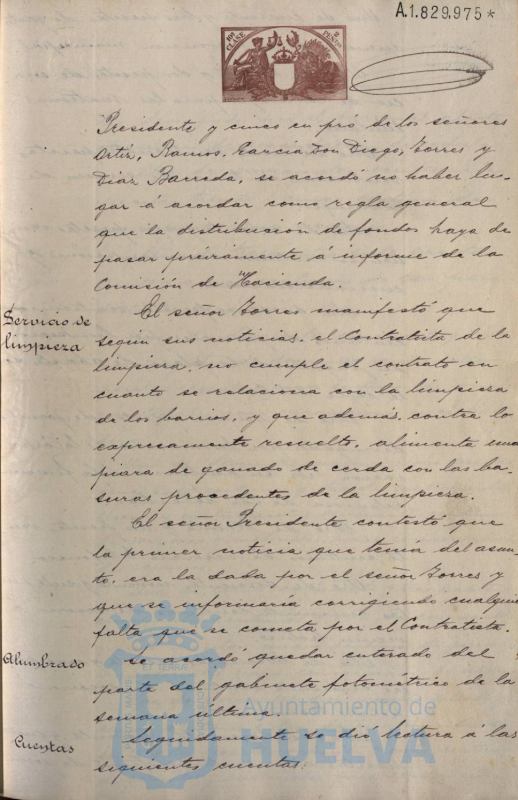 A.1.829.975*
10ª CLASE
2 PESETAS
Presidente y cinco en pró de los señores
Ortiz, Ramos, García Don Diego, Torres y
Diaz Barreda, se acordó no haber lu-
gar á acordar como regla general
que la distribución de fondos haya de
pasar préviamente á informe de la
Comisión de Hacienda.
Servicio de
limpieza
El señor Torres manifestó que
según sus noticias, el Contratista de la
limpieza, no cumple el contrato en
cuanto se relaciona con la limpieza
de los barrios, y que además, contra lo
expresamente resuelto, alimenta una
piara de ganado de cerda con las ba-
suras procedentes de la limpieza.
El señor Presidente contestó que
la primer noticia que tenía del asun-
to, era la dada por el señor Torres y
que se informaría corrigiendo cualquier
falta que se cometa por el Contratista.
Alumbrado
Se acordó quedar enterado del
parte del gabinete fotométrico de la
semana última.
Cuentas
Seguidamente se dió lectura á las
siguientes cuentas:
Ayuntamiento de
HUELVA